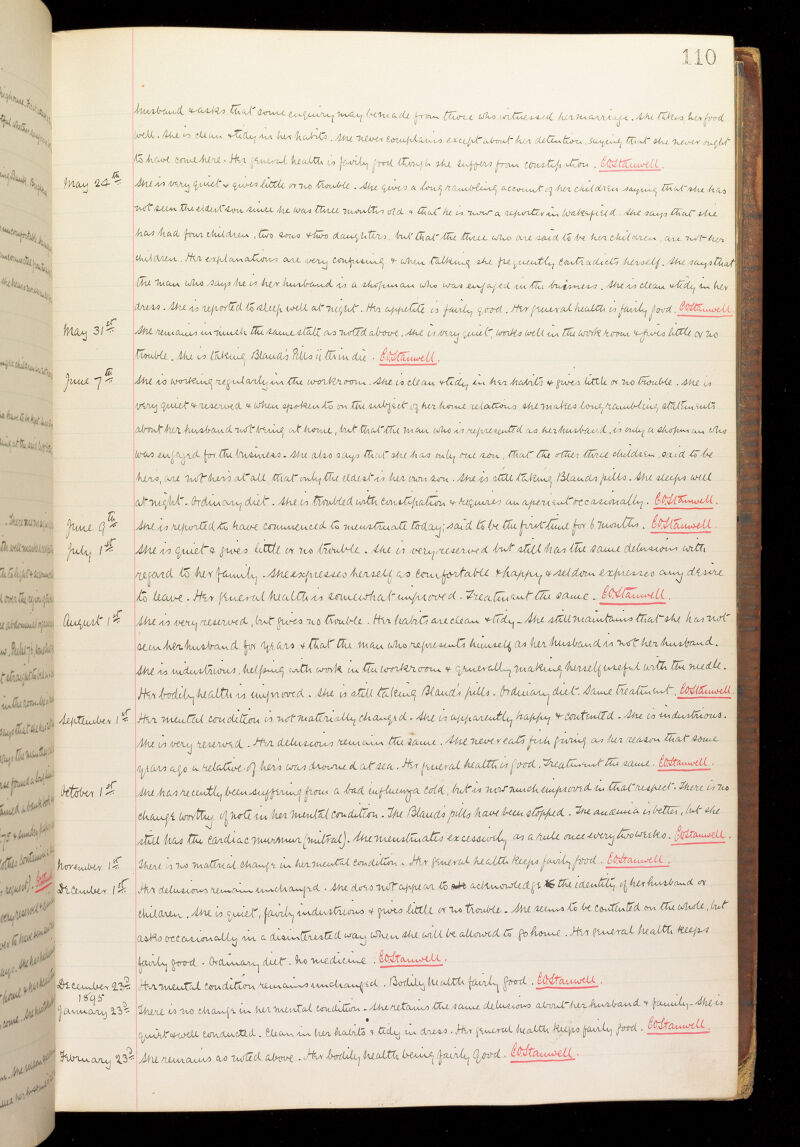 110
husband & asks that some enquiry may be made from those who witnessed her marriage. She takes her food
well. She is clean & tidy in her habits. She never complains except about her detention, saying that she never ought
to have come here. Her general health is fairly good though she suffers from constipation. COStanwell.
May 24th She is very quiet & gives little or no trouble. She gives a long rambling account of her children saying that she has
not seen the eldest son since he was three months old & that he is now a reporter in Wakefield. She says that she
has had four children, two sons & two daughters, but that the three who are said to be her children, are not her
children. Her explanations are very confusing & when talking she frequently contradicts herself. She says that
the man who says he is her husband is a shopman who was engaged in the business. She is clean & tidy in her
dress. She is reported to sleep well at night. Her appetite is fairly good. Her general health is fairly good. COStanwell.
May 31st She remains in much the same state as noted above. She is very quiet, works well in the work room & gives little or no
trouble. She is taking Blaud's Pills ii ter in die. COStanwell.
June 7th She is working regularly in the workroom. She is clean & tidy in her habits & gives little or no trouble. She is
very quiet & reserved & when spoken to on the subject of her home relations she makes long, rambling, statements
about her husband not being at home, but that the man who is represented as her husband, is only a shopman who
was engaged for the business. She also says that she has only one son, that the other three children, said to be
hers, are not hers at all, that only the eldest is her own son. She is still taking Blauds pills. She sleeps well
at night. Ordinary diet. She is troubled with constipation & requires an aperient occasionally. COStanwell.
June 9th She is reported to have commenced to menstruate today; said to be the first time for 6 months. COStanwell.
July 1st She is quiet & gives little or no trouble. She is very reserved but still has the same delusions with
regard to her family. She expresses herself as comfortable & happy & seldom expresses any desire
to leave. Her general health is somewhat improved. Treatment the same. COStanwell.
August 1st She is very reserved, but gives no trouble. Her habits are clean & tidy. She still maintains that she has not
seen her husband for years & that the man who represents himself as her husband is not her husband.
She is industrious, helping with work in the workroom & generally making herself useful with the needle.
Her bodily health is improved. She is still taking Blaud's pills. Ordinary diet. Same treatment. COStanwell.
September 1st Her mental condition is not materially changed. She is apparently happy & contented. She is industrious.
She is very reserved. Her delusions remain the same. She never eats fish giving as her reason that some
years ago a relative of hers was drowned at sea. Her general health is good. Treatment the same. COStanwell.
October 1st She has recently been suffering from a bad influenza cold, but is now much improved in that respect. There is no
change worthy of note in her mental condition. The Blaud's pills have been stopped. The anaemia is better, but she
still has the cardiac murmur (mitral). She menstruates excessively as a rule once every two weeks. COStanwell.
November 1st There is no material change in her mental condition. Her general health keeps fairly good. COStanwell.
December 1st Her delusions remain unchanged. She does not appear to acknowledge the identity of her husband or
children. She is quiet, fairly industrious & gives little or no trouble. She seems to be contented on the whole, but
asks occasionally in a disinterested way when she will be allowed to go home. Her general health keeps
fairly good. Ordinary diet. No medicine. COStanwell.
December 23rd Her mental condition remains unchanged. Bodily health fairly good. COStanwell.
1895
January 23rd There is no change in her mental condition. She retains the same delusions about her husband & family. She is
quiet & well conducted. Clean in her habits & tidy in dress. Her general health keeps fairly good. COStanwell.
February 23rd She remains as noted above. Her bodily health being fairly good. COStanwell.